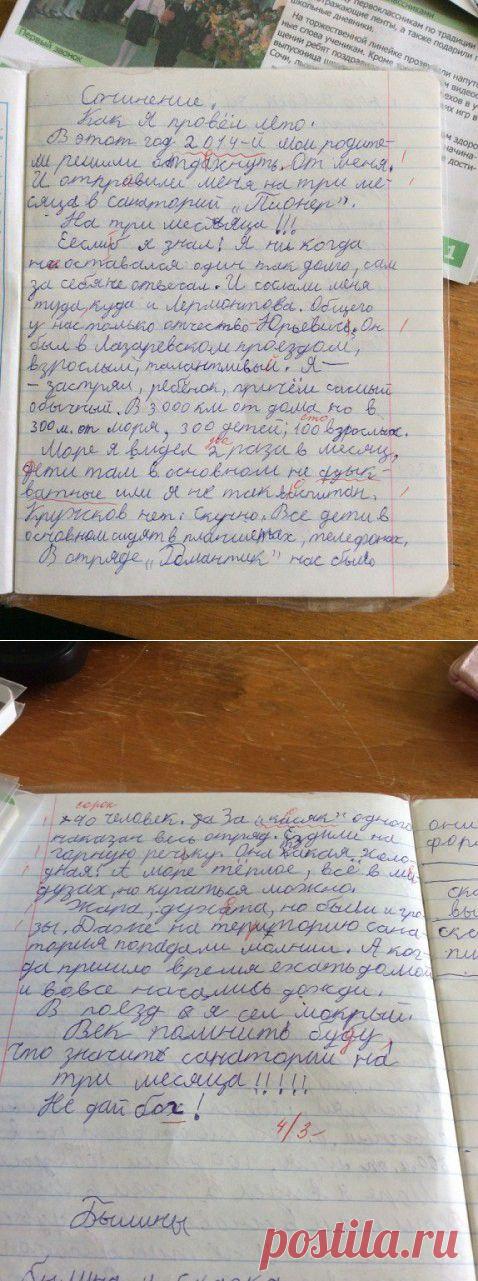 Первый звонок
1
Сочинение.
Как я провёл лето.
В этот год 2014-й мои родите-
ли решили отдахнуть. От меня.
И отправили меня на три ме-
сяца в санаторий „Пионер".
На три месяца!!!
Если б я знал! Я ни когда
не оставался один так долго, сам
за себя не отвечал. И сослали меня
туда, куда и Лермонтова. Общего
у нас только отчество Юрьевичи. Он
был в Лазаревском проездом,
взрослый, талантливый. Я —
- застрял, ребёнок, причём самый
обычный. В 3000 км от дома но в
сто
300 м. от моря, 300 детей, 100 взрослых.
два
Море я видел 2 рази в месяц,
дети там в основном не адык-
ватные или я не так воспитан.
Кружков нет. Скучно. Все дети в
основном сидят в планшетах, телефонах.
В отряде „Романтик" нас было
сорок
40 человек. За „касяк" одного
наказан весь отряд. Ездили на
горную речьку. Она такая холо-
дная! А море тёплое, всё в ме-
дузах, но купаться можно.
Жара, духата, но были и гро-
зы. Даже на територию сана-
тория попадали молнии. А ког-
да пришло время ехать домой
и вовсе начались дожди.
В поезд я сел мокрый.
Век помнить буду,
что значить санаторий на
три месяца!!!!!
Не дай бох!
4/3-
Былины
postila.ru